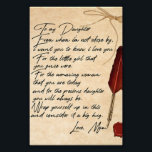 To my Daughter
Even when I'm not close by,
I want you to know I love you
For the little girl that
you once were
For the amazing woman
that you are today
and to the precious daughter
you will always be.
Wrap yourself up in this
and consider it a big hug.
Love, Mom